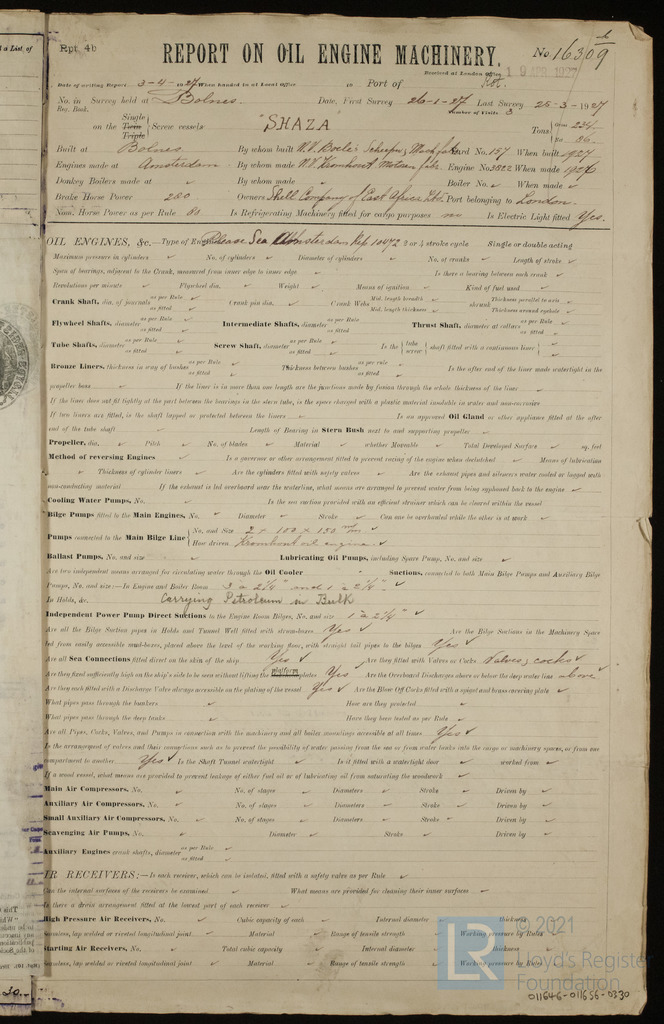 a List of
Rpt. 4b
REPORT ON OIL ENGINE MACHINERY.
No. 16309
Received at London Office 19 APR 1927
Date of writing Report 3-4-1927 When handed in at Local Office 19 Port of Rot.
No. in Survey held at Bolnes. Date, First Survey 26-1-27 Last Survey 25-3-1927
Reg. Book. Number of Visits 3
on the Single Twin Triple Screw vessels "SHAZA" Tons Gross 234 Net
Built at Bolnes By whom built N.V. Boele's Yard No. 157 When built 1927
Engines made at Amsterdam By whom made N.V. Kromhout Motoren fabr. Engine No. 3822 When made 1926
Donkey Boilers made at By whom made Boiler No. When made
Brake Horse Power 200 Owners Shell Company of East Africa Ltd. Port belonging to London.
Nom. Horse Power as per Rule 80 Is Refrigerating Machinery fitted for cargo purposes no Is Electric Light fitted Yes.
OIL ENGINES, &c.—Type of Engines Please See Amsterdam Rep 10472 2 or 4 stroke cycle Single or double acting
Maximum pressure in cylinders No. of cylinders Diameter of cylinders No. of cranks Length of stroke
Span of bearings, adjacent to the Crank, measured from inner edge to inner edge Is there a bearing between each crank
Revolutions per minute Flywheel dia. Weight Means of ignition Kind of fuel used
Crank Shaft, dia. of journals as per Rule as fitted Crank pin dia. Crank Webs Mid. length breadth Mid. length thickness shrunk Thickness parallel to axis Thickness around eyehole
Flywheel Shafts, diameter as per Rule as fitted Intermediate Shafts, diameter as per Rule as fitted Thrust Shaft, diameter at collars as per Rule as fitted
Tube Shafts, diameter as per Rule as fitted Screw Shaft, diameter as per Rule as fitted Is the tube screw shaft fitted with a continuous liner
Bronze Liners, thickness in way of bushes as per Rule as fitted Thickness between bushes as per rule as fitted Is the after end of the liner made watertight in the
propeller boss If the liner is in more than one length are the junctions made by fusion through the whole thickness of the liner
If the liner does not fit tightly at the part between the bearings in the stern tube, is the space charged with a plastic material insoluble in water and non-corrosive
If two liners are fitted, is the shaft lapped or protected between the liners Is an approved Oil Gland or other appliance fitted at the after
end of the tube shaft Length of Bearing in Stern Bush next to and supporting propeller
Propeller, dia. Pitch No. of blades Material whether Moveable Total Developed Surface sq. feet
Method of reversing Engines Is a governor or other arrangement fitted to prevent racing of the engine when declutched Means of lubrication
Thickness of cylinder liners Are the cylinders fitted with safety valves Are the exhaust pipes and silencers water cooled or lagged with
non-conducting material If the exhaust is led overboard near the waterline, what means are arranged to prevent water from being syphoned back to the engine
Cooling Water Pumps, No. Is the sea suction provided with an efficient strainer which can be cleared within the vessel
Bilge Pumps fitted to the Main Engines, No. Diameter Stroke Can one be overhauled while the other is at work
Pumps connected to the Main Bilge Line No. and Size 2 x 100 x 150 m/m How driven Kromhout oil engine.
Ballast Pumps, No. and size Lubricating Oil Pumps, including Spare Pump, No. and size
Are two independent means arranged for circulating water through the Oil Cooler Suctions, connected to both Main Bilge Pumps and Auxiliary Bilge
Pumps, No. and size:—In Engine and Boiler Room 3 a 2¼" and 1 a 2¼"
In Holds, &c. Carrying Petroleum in Bulk
Independent Power Pump Direct Suctions to the Engine Room Bilges, No. and size 1 a 2¼"
Are all the Bilge Suction pipes in Holds and Tunnel Well fitted with strum-boxes Yes Are the Bilge Suctions in the Machinery Space
led from easily accessible mud-boxes, placed above the level of the working floor, with straight tail pipes to the bilges Yes
Are all Sea Connections fitted direct on the skin of the ship Yes Are they fitted with Valves or Cocks Valves; cocks
Are they fixed sufficiently high on the ship's side to be seen without lifting the platform plates Yes Are the Overboard Discharges above or below the deep water line above
Are they each fitted with a Discharge Valve always accessible on the plating of the vessel Yes Are the Blow Off Cocks fitted with a spigot and brass covering plate
What pipes pass through the bunkers How are they protected
What pipes pass through the deep tanks Have they been tested as per Rule
Are all Pipes, Cocks, Valves, and Pumps in connection with the machinery and all boiler mountings accessible at all times Yes
Is the arrangement of valves and their connections such as to prevent the possibility of water passing from the sea or from water tanks into the cargo or machinery spaces, or from one
compartment to another Yes Is the Shaft Tunnel watertight Is it fitted with a watertight door worked from
If a wood vessel, what means are provided to prevent leakage of either fuel oil or of lubricating oil from saturating the woodwork
Main Air Compressors, No. No. of stages Diameters Stroke Driven by
Auxiliary Air Compressors, No. No. of stages Diameters Stroke Driven by
Small Auxiliary Air Compressors, No. No. of stages Diameters Stroke Driven by
Scavenging Air Pumps, No. Diameter Stroke Driven by
Auxiliary Engines crank shafts, diameter as per Rule as fitted
IR RECEIVERS:—Is each receiver, which can be isolated, fitted with a safety valve as per Rule
Can the internal surfaces of the receivers be examined What means are provided for cleaning their inner surfaces
Is there a drain arrangement fitted at the lowest part of each receiver
High Pressure Air Receivers, No. Cubic capacity of each Internal diameter thickness
Seamless, lap welded or riveted longitudinal joint Material Range of tensile strength Working pressure by Rules
Starting Air Receivers, No. Total cubic capacity Internal diameter thickness
Seamless, lap welded or riveted longitudinal joint Material Range of tensile strength Working pressure by Rules
© 2021
LR Lloyd's Register
Foundation
011646-011656-0330